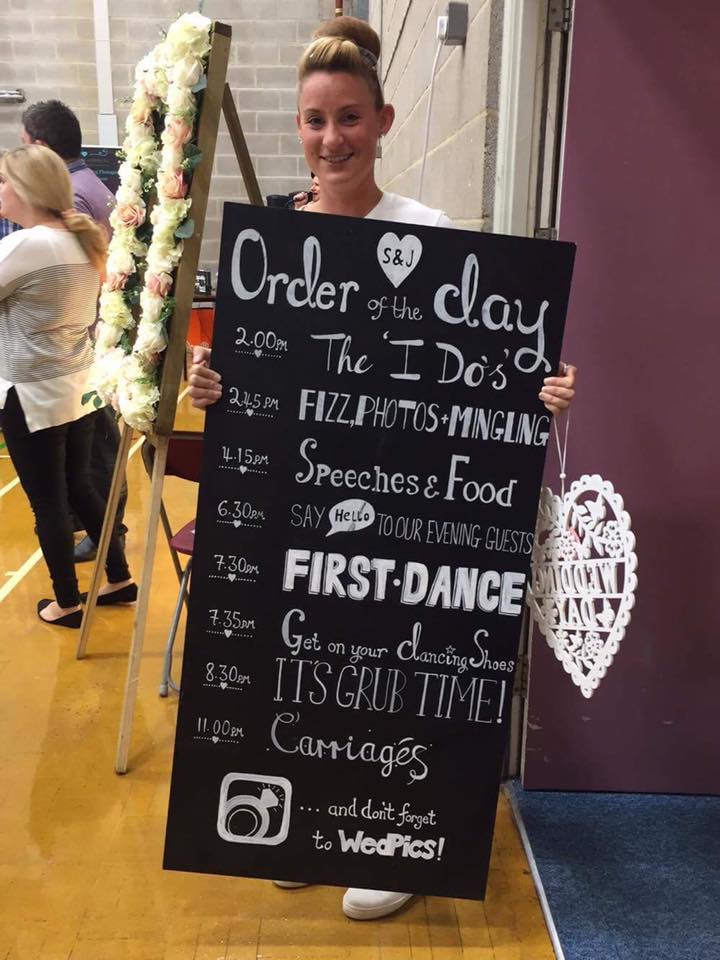 S&J
Order of the day
2.00PM The 'I Do's'
2.45PM FIZZ, PHOTOS + MINGLING
4.15PM Speeches & Food
6.30PM SAY Hello TO OUR EVENING GUESTS
7.30PM FIRST·DANCE
7.35PM Get on your dancing Shoes
8.30PM IT'S GRUB TIME!
11.00PM Carriages
... and don't forget
to WedPics!
WEDDING
DAY